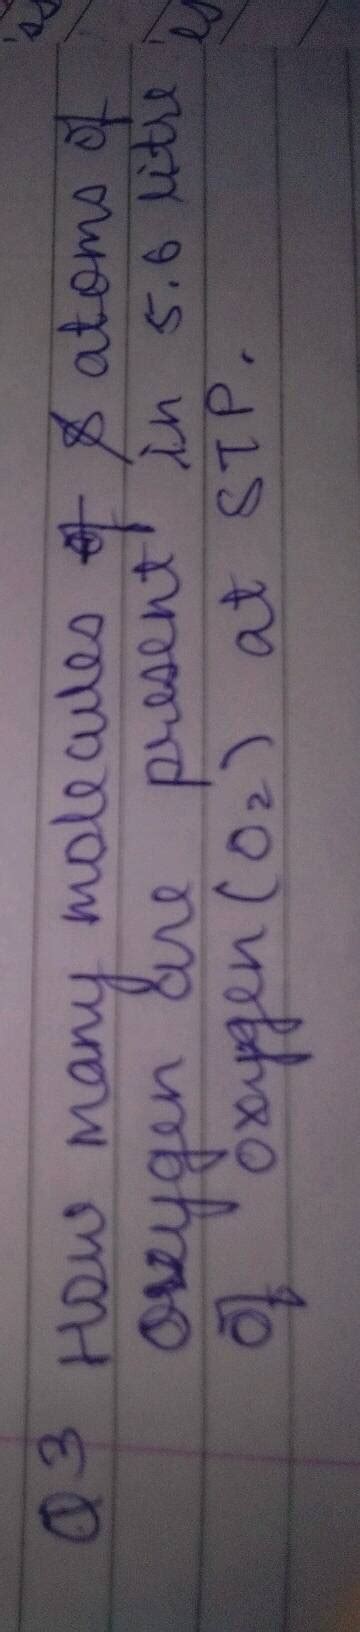 Q3 How many molecules of & atoms of
oxygen are present in 5.6 litre
of oxygen (O2) at STP.